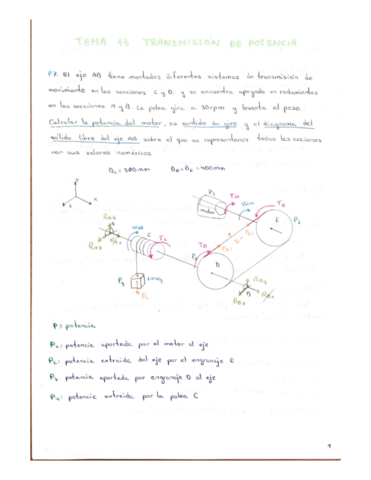 TEMA 13 TRANSMISIÓN DE POTENCIA
P7. El eje AB tiene montados diferentes sistemas de transmisión de
movimiento en las secciones C y D, y se encuentra apoyado en rodamientos
en las secciones A y B. La polea gira a 30rpm y levanta el peso.
Calcular la potencia del motor, su sentido de giro y el diagrama del
sólido libre del eje AB sobre el que se representarán todas las acciones
con sus valores numéricos
P1
motor
E
P2
C
D
P4
A
B
P = potencia
P1: potencia aportada por el motor al eje
P2: potencia extraida del eje por el engranaje E
P3 potencia aportada por engranaje D al eje
P4: potencia extraida por la polea C
1